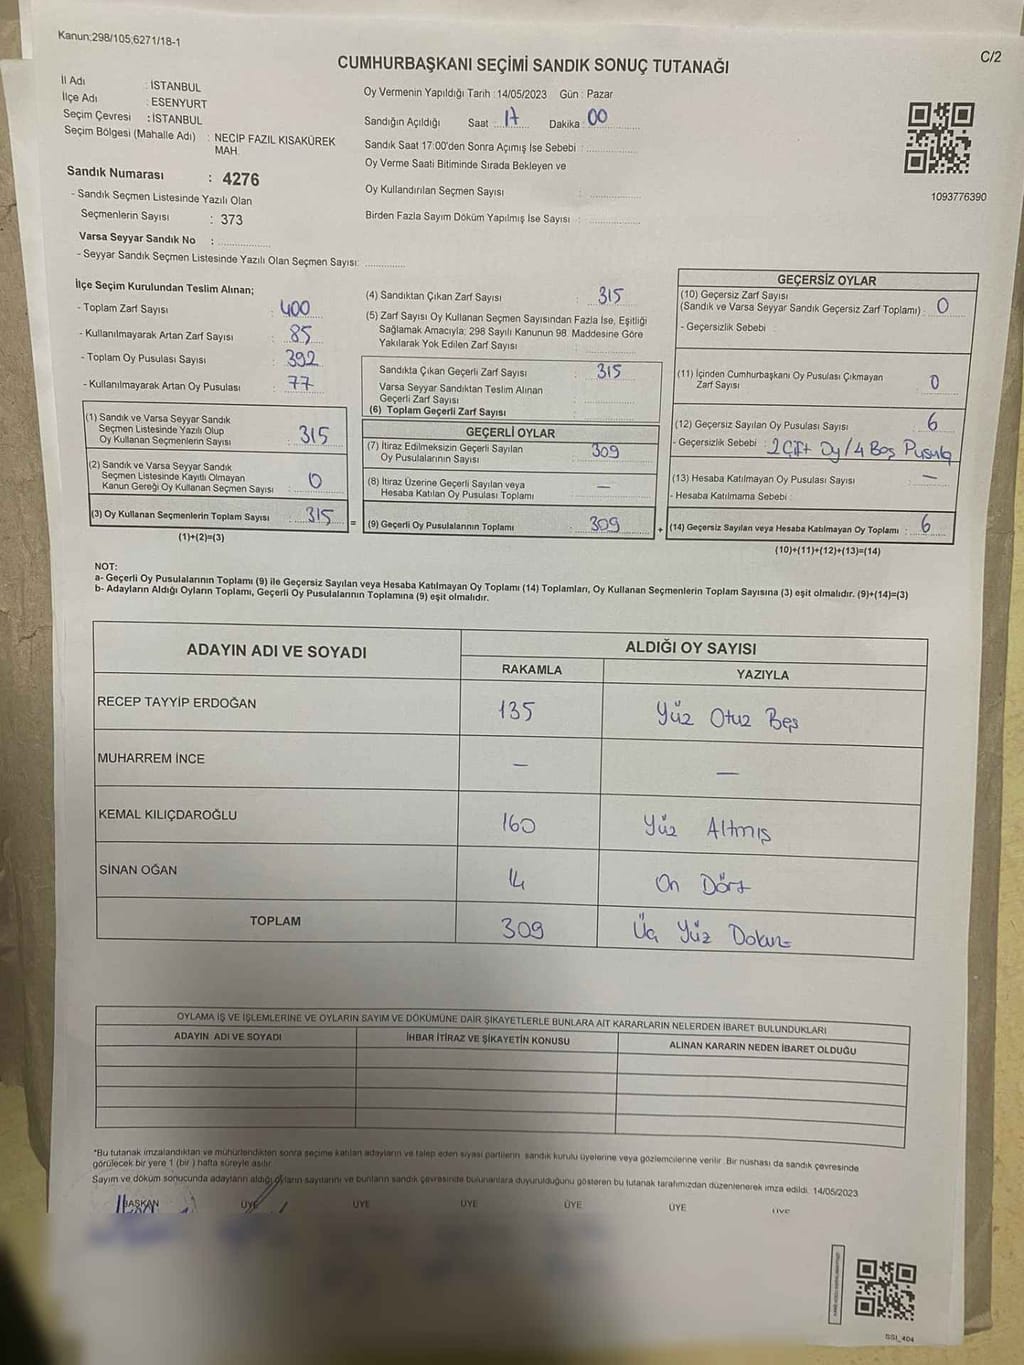 Kanun;298/105;6271/18-1
C/2
CUMHURBAŞKANI SEÇİMİ SANDIK SONUÇ TUTANAĞI
İl Adı : İSTANBUL
İlçe Adı : ESENYURT
Seçim Çevresi : İSTANBUL
Seçim Bölgesi (Mahalle Adı) : NECİP FAZIL KISAKÜREK
MAH.
Sandık Numarası : 4276
- Sandık Seçmen Listesinde Yazılı Olan
Seçmenlerin Sayısı : 373
Varsa Seyyar Sandık No :
- Seyyar Sandık Seçmen Listesinde Yazılı Olan Seçmen Sayısı:
Oy Vermenin Yapıldığı Tarih :14/05/2023 Gün : Pazar
Sandığın Açıldığı Saat : 17 Dakika : 00
Sandık Saat 17:00'den Sonra Açımış İse Sebebi :
Oy Verme Saati Bitiminde Sırada Bekleyen ve
Oy Kullandırılan Seçmen Sayısı :
Birden Fazla Sayım Döküm Yapılmış İse Sayısı :
1093776390
İlçe Seçim Kurulundan Teslim Alınan;
- Toplam Zarf Sayısı : 400
- Kullanılmayarak Artan Zarf Sayısı : 85
- Toplam Oy Pusulası Sayısı : 392
- Kullanılmayarak Artan Oy Pusulası : 77
(1) Sandık ve Varsa Seyyar Sandık
Seçmen Listesinde Yazılı Olup
Oy Kullanan Seçmenlerin Sayısı : 315
(2) Sandık ve Varsa Seyyar Sandık
Seçmen Listesinde Kayıtlı Olmayan
Kanun Gereği Oy Kullanan Seçmen Sayısı : 0
(3) Oy Kullanan Seçmenlerin Toplam Sayısı : 315 =
(1)+(2)=(3)
(4) Sandıktan Çıkan Zarf Sayısı : 315
(5) Zarf Sayısı Oy Kullanan Seçmen Sayısından Fazla İse, Eşitliği
Sağlamak Amacıyla; 298 Sayılı Kanunun 98. Maddesine Göre
Yakılarak Yok Edilen Zarf Sayısı :
Sandıkta Çıkan Geçerli Zarf Sayısı : 315
Varsa Seyyar Sandıktan Teslim Alınan
Geçerli Zarf Sayısı :
(6) Toplam Geçerli Zarf Sayısı :
GEÇERLİ OYLAR
(7) İtiraz Edilmeksizin Geçerli Sayılan
Oy Pusulalarının Sayısı : 309
(8) İtiraz Üzerine Geçerli Sayılan veya
Hesaba Katılan Oy Pusulası Toplamı : —
(9) Geçerli Oy Pusulalarının Toplamı : 309 +
GEÇERSİZ OYLAR
(10) Geçersiz Zarf Sayısı
(Sandık ve Varsa Seyyar Sandık Geçersiz Zarf Toplamı) : 0
- Geçersizlik Sebebi :
(11) İçinden Cumhurbaşkanı Oy Pusulası Çıkmayan
Zarf Sayısı : 0
(12) Geçersiz Sayılan Oy Pusulası Sayısı : 6
- Geçersizlik Sebebi : 2 Çift Oy / 4 Boş Pusula
(13) Hesaba Katılmayan Oy Pusulası Sayısı : —
- Hesaba Katılmama Sebebi :
(14) Geçersiz Sayılan veya Hesaba Katılmayan Oy Toplamı : 6
(10)+(11)+(12)+(13)=(14)
NOT:
a- Geçerli Oy Pusulalarının Toplamı (9) ile Geçersiz Sayılan veya Hesaba Katılmayan Oy Toplamı (14) Toplamları, Oy Kullanan Seçmenlerin Toplam Sayısına (3) eşit olmalıdır. (9)+(14)=(3)
b- Adayların Aldığı Oyların Toplamı, Geçerli Oy Pusulalarının Toplamına (9) eşit olmalıdır.
ADAYIN ADI VE SOYADI
ALDIĞI OY SAYISI
RAKAMLA YAZIYLA
RECEP TAYYİP ERDOĞAN 135 Yüz Otuz Beş
MUHARREM İNCE — —
KEMAL KILIÇDAROĞLU 160 Yüz Altmış
SİNAN OĞAN 14 On Dört
TOPLAM 309 Üç Yüz Dokuz
OYLAMA İŞ VE İŞLEMLERİNE VE OYLARIN SAYIM VE DÖKÜMÜNE DAİR ŞİKAYETLERLE BUNLARA AİT KARARLARIN NELERDEN İBARET BULUNDUKLARI
ADAYIN ADI VE SOYADI İHBAR İTİRAZ VE ŞİKAYETİN KONUSU ALINAN KARARIN NEDEN İBARET OLDUĞU
*Bu tutanak imzalandıktan ve mühürlendikten sonra seçime katılan adayların ve talep eden siyasi partilerin sandık kurulu üyelerine veya gözlemcilerine verilir. Bir nüshası da sandık çevresinde
görülecek bir yere 1 (bir ) hafta süreyle asılır.
Sayım ve döküm sonucunda adayların aldığı oyların sayılarını ve bunların sandık çevresinde bulunanlara duyurulduğunu gösteren bu tutanak tarafımızdan düzenlenerek imza edildi. 14/05/2023
BAŞKAN ÜYE ÜYE ÜYE ÜYE ÜYE ÜYE
SSI_404